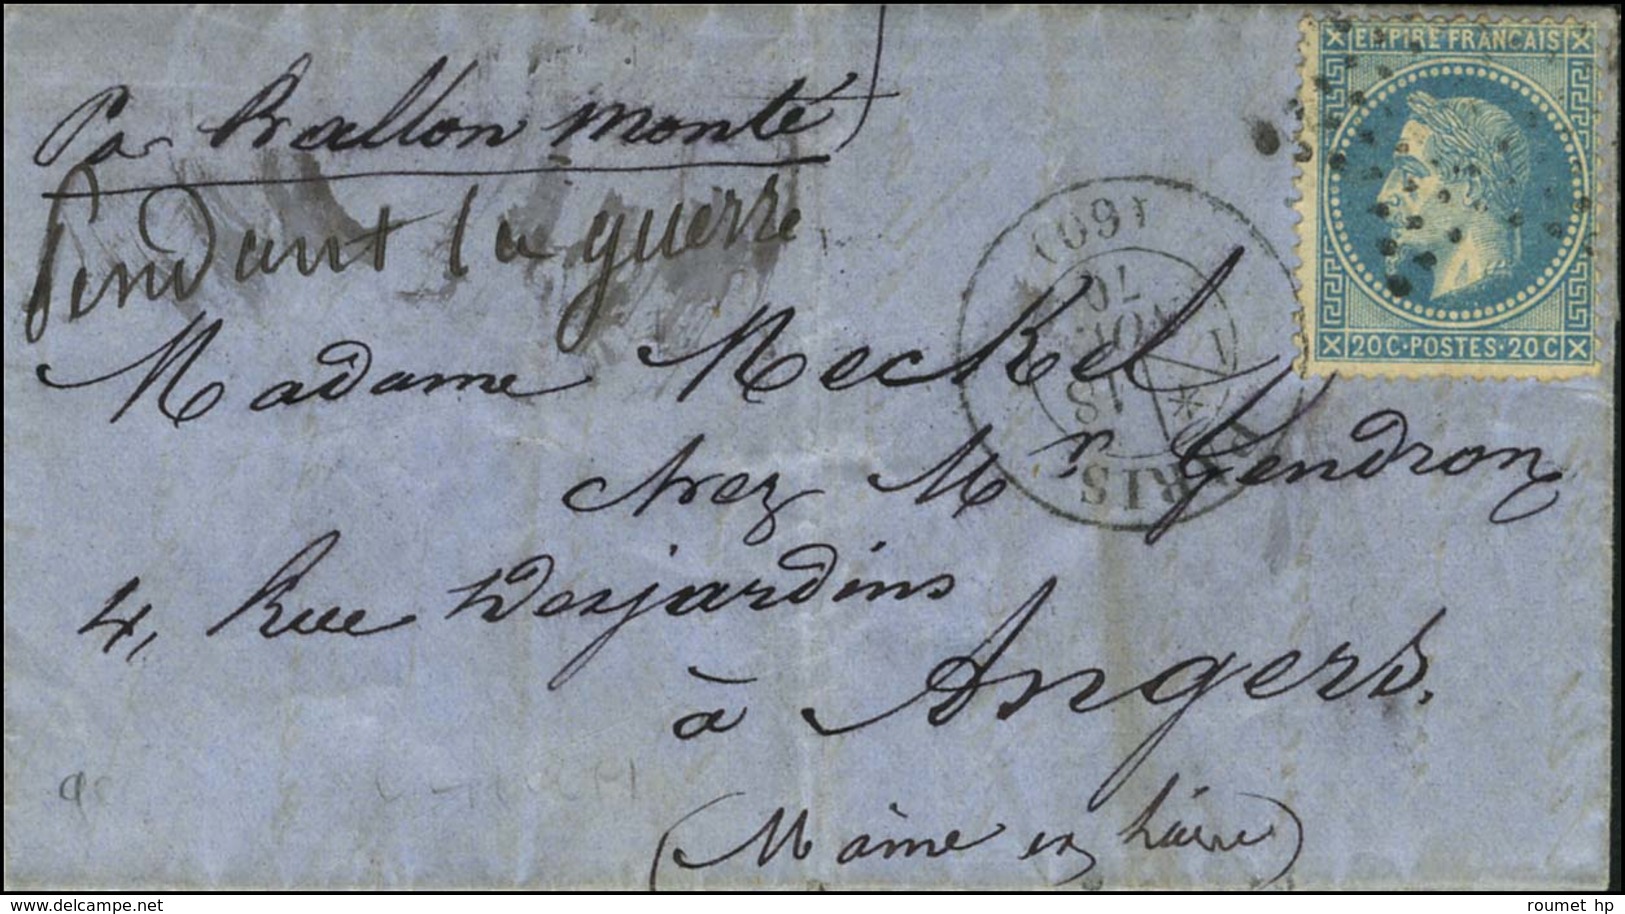 Par Ballon monté
Pendant la guerre
EMPIRE FRANCAIS
20 C · POSTES · 20 C
PARIS
(60)
18
NOV.
70
Madame Meckel
chez Mr Gendron
4, Rue Desjardins
à Angers.
(Maine en Loire)
www.delcampe.net
roumet hp